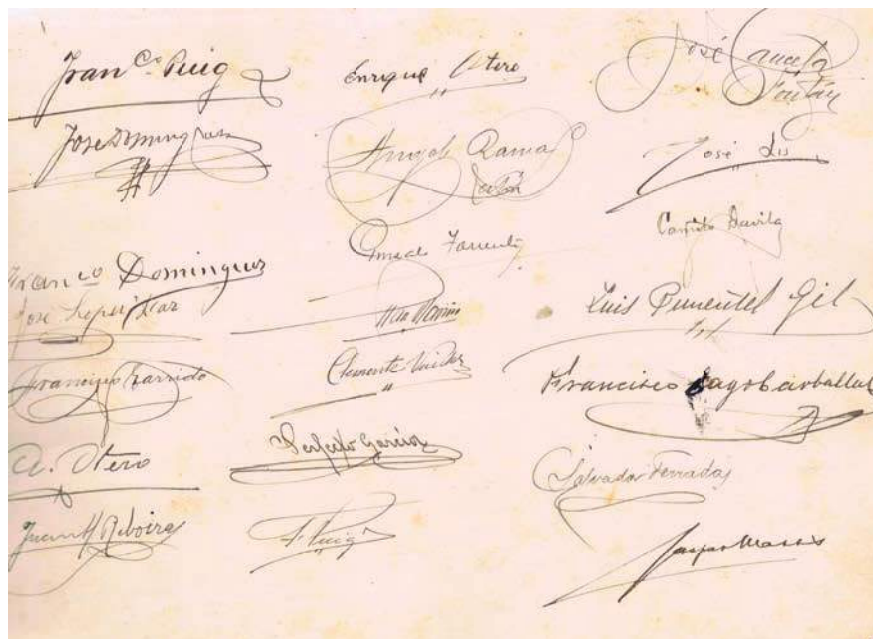 Fran.co Puig
Jose Domingues
Franco Dominguez
Jose Lopez Diaz
Francisco Garrido
A. Otero
Juan M Riboira
Enrique Otero
Angel Rama
Amado Torrente
Clemente
Perfecto Garcia
F. Puig
José
José Lis
Camilo Davila
Luis Pimentel Gil
Francisco Lago Carballal
Salvador Terradas
Gaspar Massó